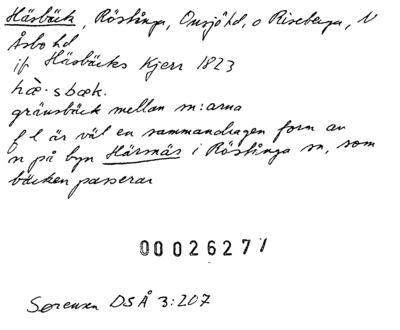 Häsbäck, Röstånga, Onsjö hd, o Riseberga, N
Åsbo hd
if Häsbäcks Kjerr 1823
hæ̀·sbæk.
gränsbäck mellan sn:arna
f l är väl en sammandragen form av
n på byn Härsnäs i Röstånga sn, som
bäcken passerar
00026277
Sørensen DSÅ 3:207